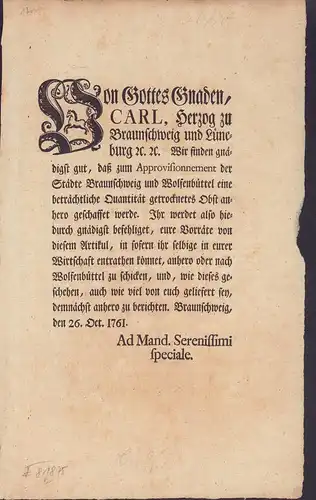 Von Gottes Gnaden,
CARL, Herzog zu
Braunschweig und Lüne-
burg ꝛc. ꝛc. Wir finden gnä-
digst gut, daß zum Approvisionnement der
Städte Braunschweig und Wolfenbüttel eine
beträchtliche Quantität getrocknetes Obst an-
hero geschaffet werde. Ihr werdet also hie-
durch gnädigst befehliget, eure Vorräte von
diesem Artikul, in sofern ihr selbige in eurer
Wirtschaft entrathen könnet, anhero oder nach
Wolfenbüttel zu schicken, und, wie dieses ge-
schehen, auch wie viel von euch geliefert sey,
demnächst anhero zu berichten. Braunschweig,
den 26. Oct. 1761.
Ad Mand. Serenissimi
speciale.